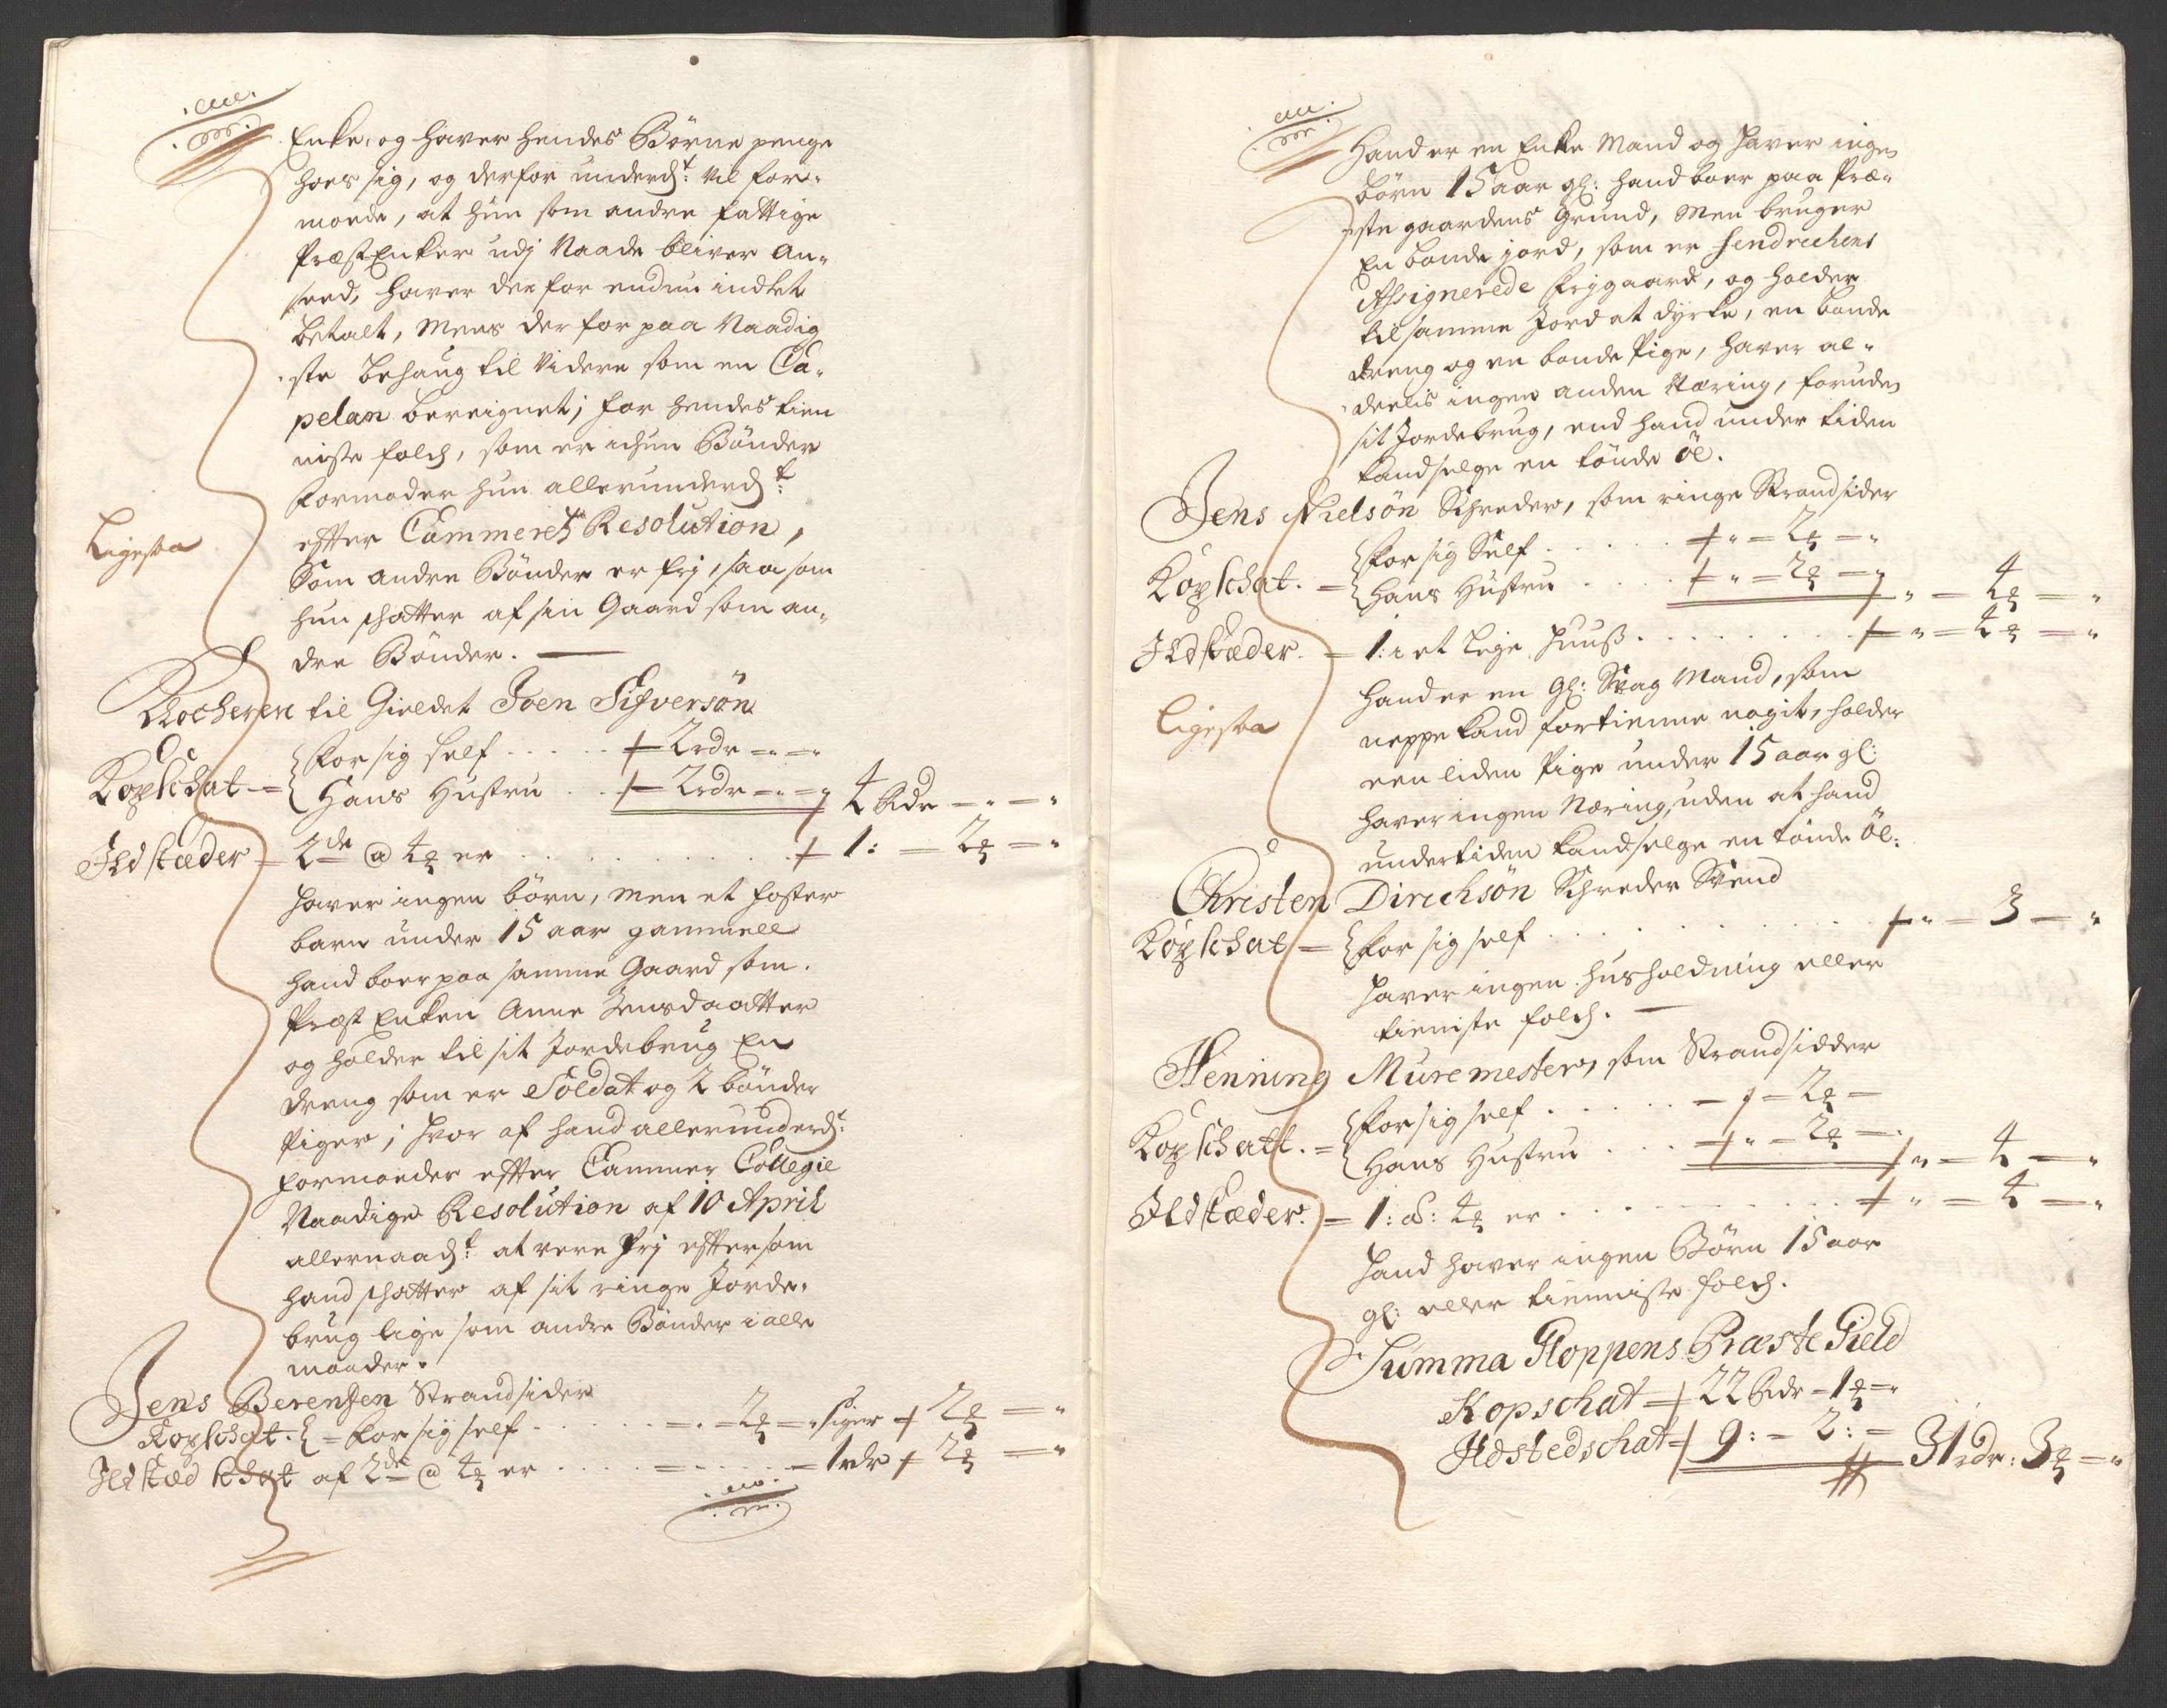 Enke, og haver hendes Börne penge
hoes sig, og derfor underd:t vil for-
moede, at hun som andre fattige
Præst Enker udj Naade bliver An-
seed, haver der for endnu indtet
betalt, Mens der for paa Naadig
ste behaug til Videre som en Ca-
pelan bereignet; for hendes tien
niste folch, som er ichun Bönder
formoder hun allerunderd:t
Ligesaa
effter Cammerets Resolution,
Som andre Bönder er frj, saa som
hun schatter af sin Gaard som an-
dre Bönder.
Klocheren til Gieldet Joen Sifversön
Kopschat = for sig self . . . 2 rdr
Hans Hustru . . 2 rdr 4 Rdr
Ildstæder = 2de @ 4 er . . . 1: = 2
haver ingen börn, men et foster
barn under 15 aar gammell
hand boer paa samme Gaard som
Præst Enken Anne Jensdaatter
og holder til sit Jordebrug En
dreng som er Soldat og 2 bönder
Piger; hvor af hand allerunderd:t
formoeder effter Cammer Collegie
Naadige Resolution af 10 April
allernaad:t at vere frj effter som
hand schatter af sit ringe Jorde-
brug lige som andre Bönder i alle
maader.
Jens Berentsen Strandsider
Kopschat = for sig self . . . 2 siger 2
Ildstæd schat af 2de @ 4 er . . . 1 rdr 2
Hand er en Enke Mand og haver ingen
börn 15 aar gl: hand boer paa Præ-
ste gaardens Grund, Men bruger
En bonde jord, som er Hendrichens
Assignerede frjgaard, og holder
til samme Jord at dyrke, en bonde
dreng og en bonde Pige, haver al-
deelis ingen anden Næring, foruden
sit Jordebrug, end hand under tiden
kand selge en tönde öl.
Jens Nielsön Schreder, som ringe Strandsider
Kopschat. = for sig Self . . . 2
Hans Hustru . . . 2 4
Ildstæder = 1: i et leje huuss . . . 4
Ligesaa
Hand er en gl: Svag Mand, som
neppe kand fortienne nogit, holder
een liden Pige under 15 aar gl:
haver ingen Næring, uden at hand
undertiden kand selge en tönde öl:
Christen Dirichsön Schreder Svend
Kopschat = for sig self . . . 3
haver ingen husholdning eller
tieniste folch.
Henning Muremester, som Strandsidder
Kopschatt. = for sig self . . . 2
Hans Hustru . . . 2 4
Ildstæder = 1: @: 4 er . . . 4
hand haver ingen Börn 15 aar
gl: eller tienniste folch.
Summa Gloppens Præste Gield
Kopschat = 22 Rdr = 1
Ildstedschat = 9: = 2: = 31 rdr: 3